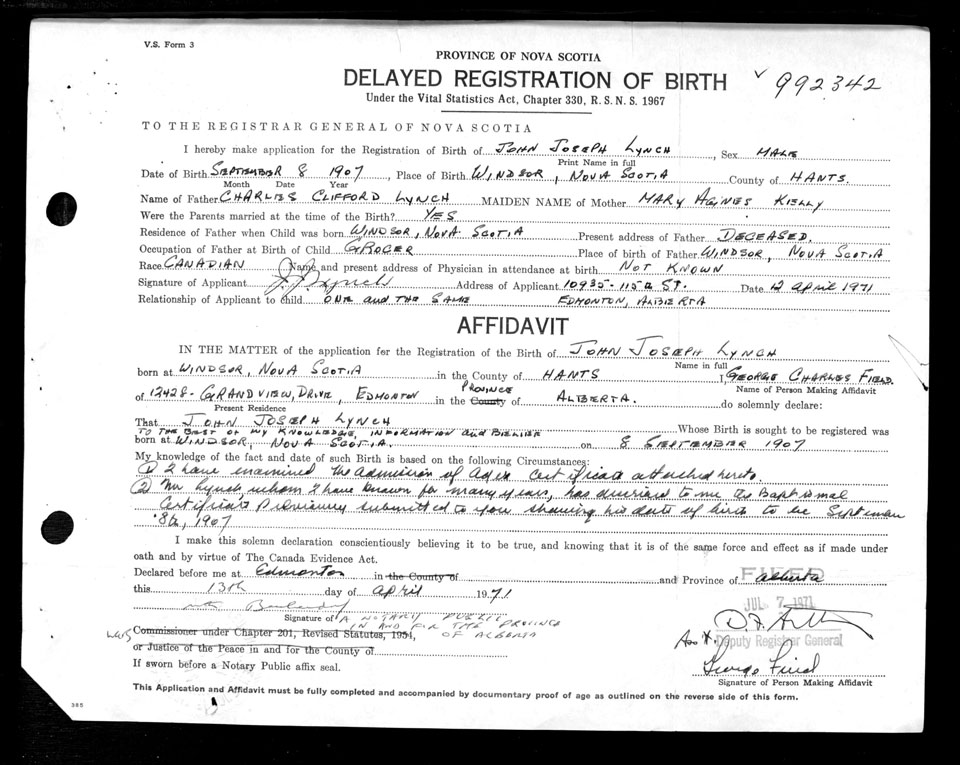 V.S. Form 3
PROVINCE OF NOVA SCOTIA
DELAYED REGISTRATION OF BIRTH
992342
Under the Vital Statistics Act, Chapter 330, R.S.N.S. 1967
TO THE REGISTRAR GENERAL OF NOVA SCOTIA
I hereby make application for the Registration of Birth of JOHN JOSEPH LYNCH, Sex MALE
Print Name in full
Date of Birth SEPTEMBER 8 1907, Place of Birth WINDSOR, NOVA SCOTIA County of HANTS.
Month Date Year
Name of Father CHARLES CLIFFORD LYNCH MAIDEN NAME of Mother MARY AGNES KIELLY
Were the Parents married at the time of the Birth? YES
Residence of Father when Child was born WINDSOR, NOVA SCOTIA Present address of Father DECEASED.
Occupation of Father at Birth of Child GROCER Place of birth of Father WINDSOR, NOVA SCOTIA
Race CANADIAN Name and present address of Physician in attendance at birth NOT KNOWN
Signature of Applicant J J Lynch Address of Applicant 10935-115th ST. Date 12 April 1971
Relationship of Applicant to Child ONE and THE SAME EDMONTON, ALBERTA
AFFIDAVIT
IN THE MATTER of the application for the Registration of the Birth of JOHN JOSEPH LYNCH
Name in full
born at WINDSOR, NOVA SCOTIA in the County of HANTS I, GEORGE CHARLES FIELD.
Name of Person Making Affidavit
of 12428- GRANDVIEW DRIVE, EDMONTON in the County PROVINCE of ALBERTA. do solemnly declare:
Present Residence
That JOHN JOSEPH LYNCH Whose Birth is sought to be registered was
TO THE BEST OF MY KNOWLEDGE, INFORMATION and BELIEF
born at WINDSOR, NOVA SCOTIA. on 8 SEPTEMBER 1907
My knowledge of the fact and date of such Birth is based on the following Circumstances:
① I have examined the admission of certificate attached hereto.
② Mr Lynch, whom I have known for many years, has to me Baptismal
Certificate previously submitted to you showing his date of birth to be
8th, 1907
I make this solemn declaration conscientiously believing it to be true, and knowing that it is of the same force and effect as if made under
oath and by virtue of The Canada Evidence Act.
Declared before me at Edmonton in the County of and Province of Alberta
FILED
this 13th day of April 1971
JUL 7 1971
Signature of A NOTARY PUBLIC
IN AND FOR THE PROVINCE
Commissioner under Chapter 201, Revised Statutes, 1954, OF ALBERTA
Deputy Registrar General
or Justice of the Peace in and for the County of
If sworn before a Notary Public affix seal.
George Field
Signature of Person Making Affidavit
This Application and Affidavit must be fully completed and accompanied by documentary proof of age as outlined on the reverse side of this form.
385